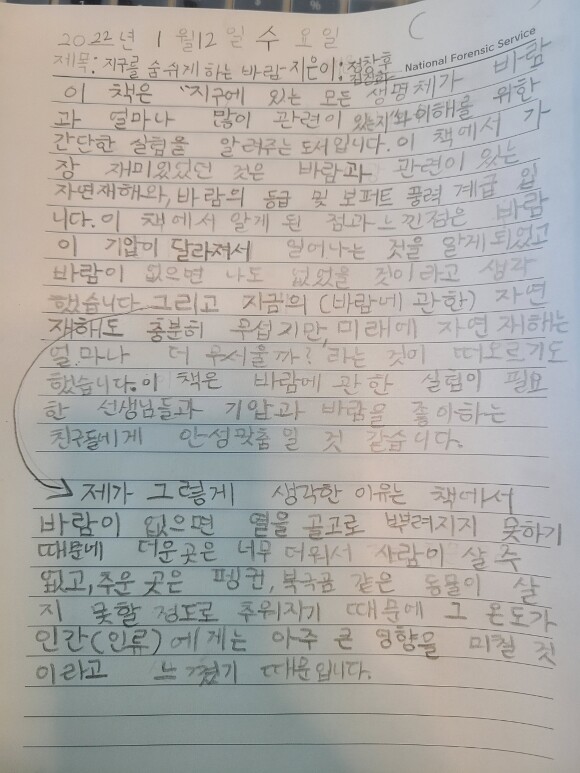 2022년 1월 12일 수요일
National Forensic Service
제목: 지구를 숨쉬게 하는 바람 - 지은이: 정창훈
이 책은 "지구에 있는 모든 생명체가 바람
과 얼마나 많이 관련이 있는지"와 이해를 위한
간단한 실험을 알려주는 도서입니다. 이 책에서 가
장 재미있었던 것은 바람과 관련이 있는
자연재해와, 바람의 등급 및 보퍼트 풍력 계급 입
니다. 이 책에서 알게 된 점과 느낀점은 바람
이 기압이 달라져서 일어나는 것을 알게되었고
바람이 없으면 나도 없었을 것이라고 생각
했습니다 그리고 지금의 (바람에 관한) 자연
재해도 충분히 무섭지만, 미래에 자연 재해는
얼마나 더 무서울까? 라는 것이 떠오르기도
했습니다. 이 책은 바람에 관한 실험이 필요
한 선생님들과 기압과 바람을 좋아하는
친구들에게 안성맞춤일 것 같습니다.
제가 그렇게 생각한 이유는 책에서
바람이 없으면 열을 골고로 뿌려지지 못하기
때문에 더운곳은 너무 더워서 사람이 살 수
없고, 추운 곳은 펭귄, 북극곰 같은 동물이 살
지 못할 정도로 추워지기 때문에 그 온도가
인간(인류)에게는 아주 큰 영향을 미칠 것
이라고 느꼈기 때문입니다.